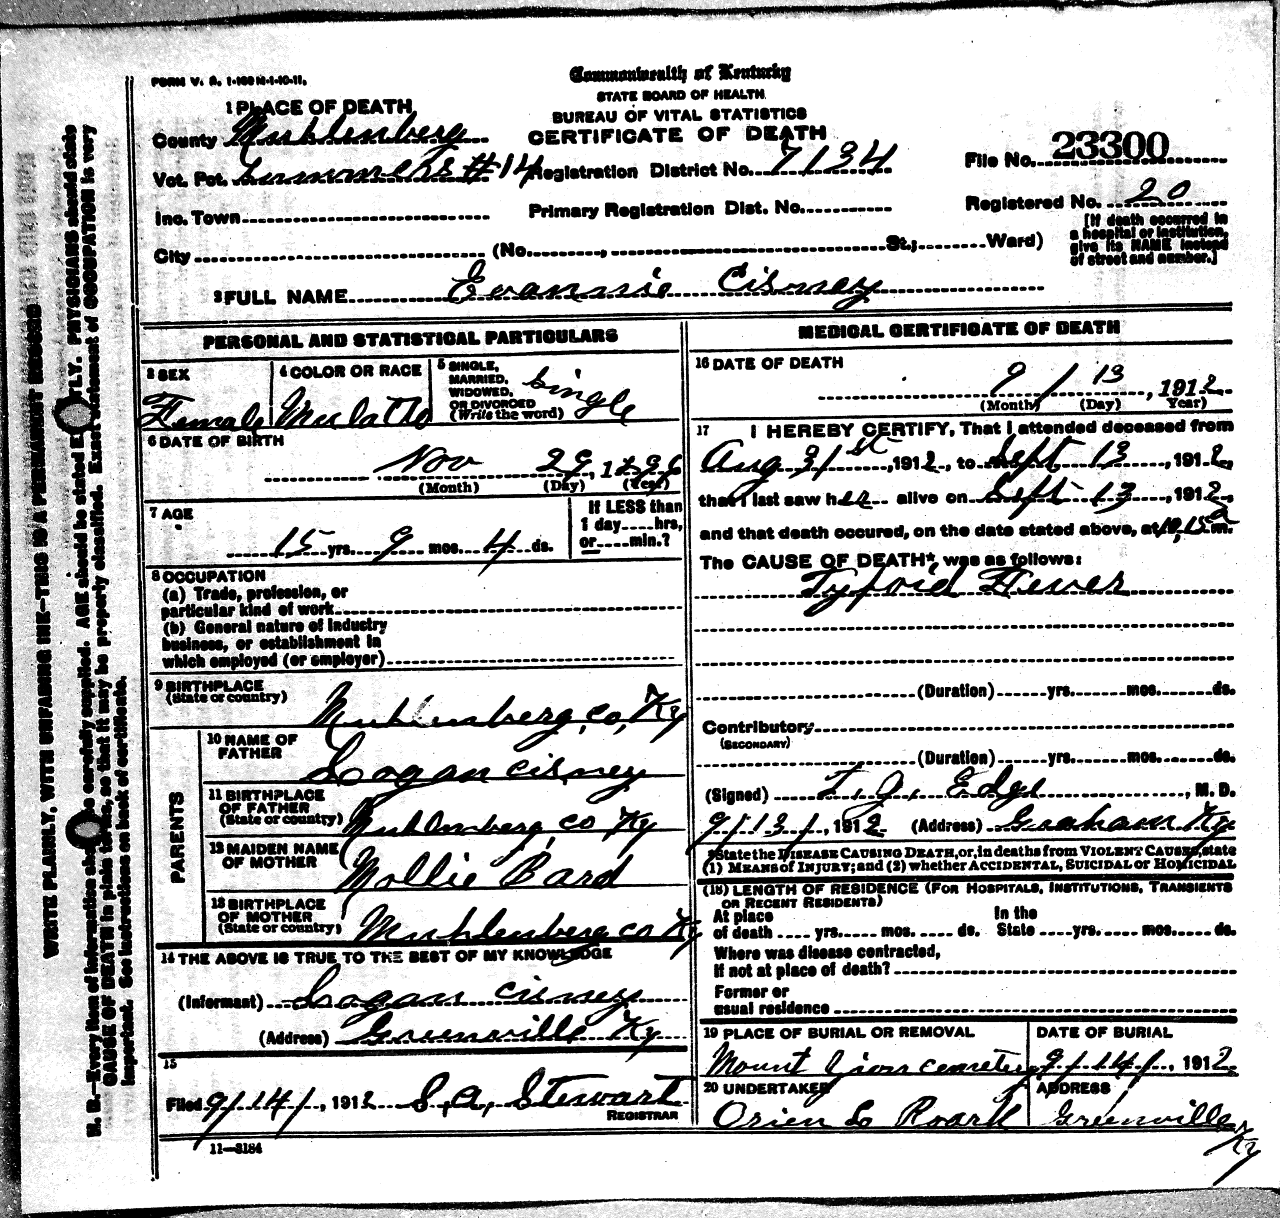 FORM V. S. 1-100 M-1-10-11.
Commonwealth of Kentucky
STATE BOARD OF HEALTH
BUREAU OF VITAL STATISTICS
CERTIFICATE OF DEATH
1 PLACE OF DEATH
County Muhlenberg
Vot. Pct. #14 Registration District No. 7134
File No. 23300
Inc. Town Primary Registration Dist. No.
Registered No. 20
City (No. , St.; Ward)
[If death occurred in
a hospital or institution,
give its NAME instead
of street and number.]
2 FULL NAME Evannie Cisney
PERSONAL AND STATISTICAL PARTICULARS
3 SEX
Female
4 COLOR OR RACE
Mulatto
5 SINGLE,
MARRIED,
WIDOWED,
OR DIVORCED
(Write the word)
Single
6 DATE OF BIRTH
Nov 29, 1896
(Month) (Day) (Year)
7 AGE
15 yrs. 9 mos. 4 ds.
If LESS than
1 day....hrs,
or....min.?
8 OCCUPATION
(a) Trade, profession, or
particular kind of work
(b) General nature of industry
business, or establishment in
which employed (or employer)
9 BIRTHPLACE
(State or country)
Muhlenberg, co, Ky
PARENTS
10 NAME OF
FATHER
Logan Cisney
11 BIRTHPLACE
OF FATHER
(State or country)
Muhlenberg, co Ky
12 MAIDEN NAME
OF MOTHER
Mollie Bard
13 BIRTHPLACE
OF MOTHER
(State or country)
Muhlenberg co Ky
14 THE ABOVE IS TRUE TO THE BEST OF MY KNOWLEDGE
(Informant) Logan Cisney
(Address) Greenville Ky
15
Filed 9/14/, 1912 S, A, Stewart
REGISTRAR
11-3184
MEDICAL CERTIFICATE OF DEATH
16 DATE OF DEATH
9 / 13, 1912
(Month) (Day) Year)
17 I HEREBY CERTIFY, That I attended deceased from
Aug 31st, 1912, to Sept 13, 1912,
that I last saw her alive on Sept 13, 1912,
and that death occured, on the date stated above, at 10,15 a m.
The CAUSE OF DEATH*, was as follows:
Tyfoid Fever
(Duration) yrs. mos. ds.
Contributory
(SECONDARY)
(Duration) yrs. mos. ds.
(Signed) T, J, Edge, M. D.
9/13/, 1912 (Address) Graham Ky
*State the DISEASE CAUSING DEATH, or, in deaths from VIOLENT CAUSES, state
(1) MEANS of INJURY; and (2) whether ACCIDENTAL, SUICIDAL or HOMICIDAL
(18) LENGTH OF RESIDENCE (FOR HOSPITALS, INSTITUTIONS, TRANSIENTS
OR RECENT RESIDENTS)
At place
of death .... yrs. .... mos. .... ds.
In the
State ....yrs. ....mos. ....ds.
Where was disease contracted,
if not at place of death?
Former or
usual residence
19 PLACE OF BURIAL OR REMOVAL
Mount Zion cemetery
DATE OF BURIAL
9/14/, 1912
20 UNDERTAKER
Orien L Roark
ADDRESS
Greenville
Ky
WRITE PLAINLY, WITH UNFADING INK—THIS IS A PERMANENT RECORD
N. B.—Every item of information should be carefully supplied. AGE should be stated EXACTLY. PHYSICIANS should state
CAUSE OF DEATH in plain terms, so that it may be properly classified. Exact statement of OCCUPATION is very
important. See instructions on back of certificate.